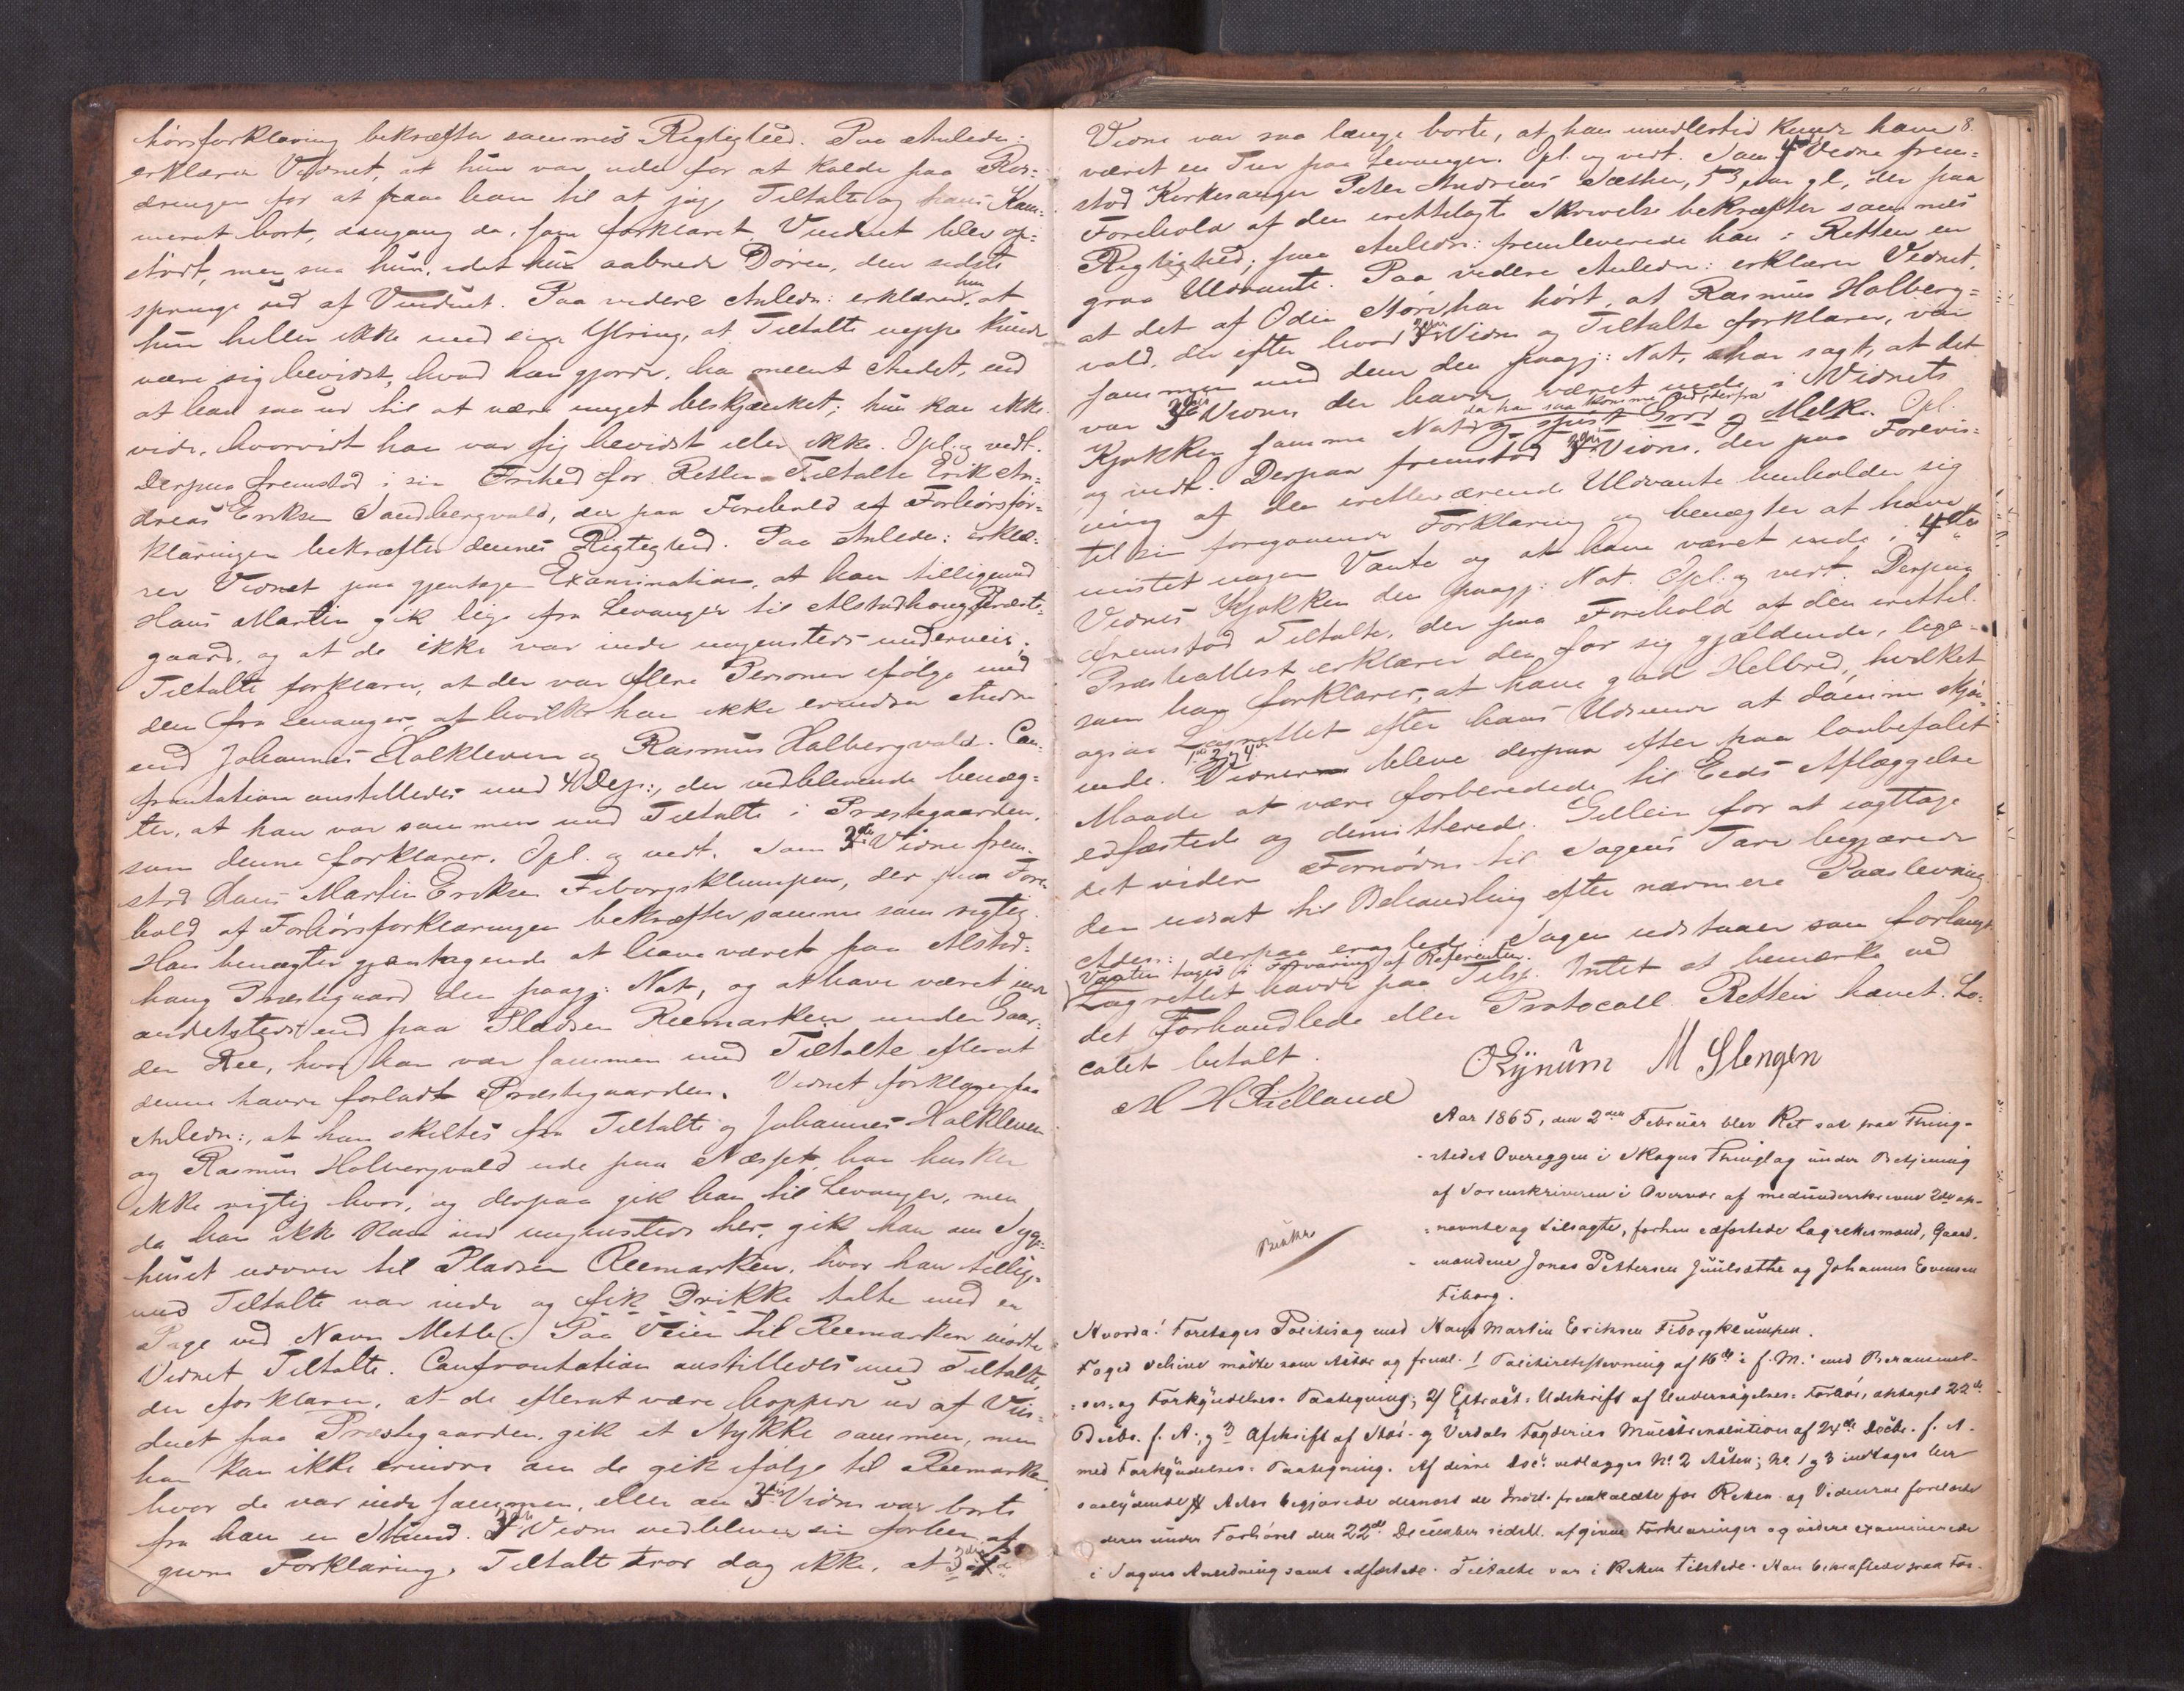 hörsforklaring bekræfter sammes Rigtighed. Paa Anledn:
erklærer Vidnet, at hun var ude for at kalde paa
drengen for at faae ham til at jage Tiltalte og hans Kam-
merat bort, dengang da, som forklaret, Vinduet blev op-
stödt, men saa hun, idet hun aabnede Dören, den sidste
springe ud af Vinduet. Paa videre Anledn: erklærede hun, at
hun heller ikke med sin Ytring, at Tiltalte neppe kunde
være sig bevidst, hvad han gjorde, har meent Andet, end
at han saa ud til at være meget beskjænket; hun kan ikke
vide, hvorvidt han var sig bevidst eller ikke. Opl. og vedt.
Derpaa fremstod i sin Frihed for Retten Tiltalte Erik An-
dreas Eriksen Sandbergvald, der paa Forehold af Forhörsfor-
klaringen bekræfter dennes Rigtighed. Paa Anledn: erklæ-
rer Vidnet paa gjentagen Examination, at han tilligemed
Hans Martin gik lige fra Levanger til Alstadhoug Præste-
gaard, og at de ikke var inde nogensteds underveis;
Tiltalte forklarer, at der var flere Personer ifölge med
dem fra Levanger, af hvilke han ikke erindrer Andre
end Johannes Halkleven og Rasmus Halbergvald. Con-
frontation anstilledes med 4 Dep:, der vedblivende benæg-
ter, at han var sammen med Tiltalte i Præstegaarden,
som denne forklarer. Opl. og vedt. Som 3die Vidne frem-
stod Hans Martin Eriksen Fiborgsklumpen, der paa Fore-
hold af Forhörsforklaringen bekræfter samme som rigtig.
Han benægter gjentagende at have været paa Alstad-
houg Præstegaard den paagj: Nat, og at have været inde
andetsteds end paa Pladsen Reemarken under Gaar-
den Ree, hvor han var sammen med Tiltalte efterat
denne havde forladt Præstegaarden. Vidnet forklarer paa
Anledn:, at han skiltes fra Tiltalte og Johannes Halkleven
og Rasmus Halbergvald ude paa Næsset, han husker
ikke rigtig hvor, og derpaa gik han til Levanger, men
da han ikke kom ind nogensteds her, gik han om Syge-
huset udover til Pladsen Reemarken, hvor han tillige-
med Tiltalte var inde og fik Drikke talte med en
Pige ved Navn Mette. Paa Veien til Reemarken mödte
Vidnet Tiltalte. Confrontation anstilledes med Tiltalte,
der forklarer, at de efterat være hoppede ud af Vin-
duet paa Præstegaarden, gik et Stykke sammen, men
han kan ikke erindre om de gik ifölge til Reemarken
hvor de var inde sammen, eller om 3die Vidne var borte
fra ham en Stund. 3die Vidne vedbliver sin forhen af-
givne Forklaring. Tiltalte tror dog ikke, at 3die
8.
Vidne var saa længe borte, at han imidlertid kunde have
været en Tur paa Levanger. Opl. og vedt. Som 4de Vidne frem-
stod Kirkesanger Peter Andreas Sæther, 53 Aar gl, der paa
Forehold af den irettelagte Skrivelse bekræfter sammes
Rigtighed; paa Anledn: fremleverede han i Retten en
graa Uldvante. Paa videre Anledn: erklærer Vidnet,
at det af Odin har hört, at Rasmus Halberg-
vald, der efter hvad 3die Vidne og Tiltalte forklarer, var
sammen med dem den paagj: Nat, har sagt, at det
var 3die Vidne der havde været inde i Vidnets
Kjökken samme Nat, da han saa komme ud derfra og spist Gröd og Melk. Opl.
og vedt. Derpaa fremstod 3die Vidne, der paa Forevis-
ning af den iretteværende Uldvante henholder sig
til sin foregaaende Forklaring og benægter at have
mistet nogen Vante og at have været inde i 4de
Vidnes Kjökken den paagj: Nat. Opl. og vedt. Derpaa
fremstod Tiltalte, der paa Forehold af den irettel.
Præsteattest erklærer den for sig gjældende, lige-
som han forklarer, at have god Helbred, hvilket
ogsaa Lagrettet efter hans Udseende at dömme skjön-
nede. 1ste, 2de og 4de Vidner bleve derpaa efter paa lovbefalet
Maade at være forberedede til Eeds Aflæggelse
edfæstede og dimitterede. for at iagttage
det videre Fornödne til Sagens Tarv begjærede
den udsat til Behandling efter nærmere Paastevning.
derpaa eragtede: Sagen udstaaer som forlangt.
Vanten tages i Forvaring af Referenten.
Lagrettet havde paa Tilsp. Intet at bemærke ved
det Forhandlede eller Protocoll. Retten hævet. Lo-
calet betalt.
M H Kielland
O Rynum M Slengen
Aar 1865, den 2den Februar blev Ret sat paa Thing-
stedet Overeggen i Skogns Thinglag under Betjening
af Sorenskriveren i Overvær af medunderskrevne 2de op-
nævnte og tilsagte, forhen edfæstede Lagrettesmænd, Gaard-
mændene Jonas Pettersen Juulsæthe og Johannes Evensen
Fiborg.
Hvorda: Foretages Politisag mod Hans Martin Eriksen Fiborgklumpen.
Foged mödte som Actor og freml. 1 Politiretsstevning af 16de i f. M. med Berammel-
ses- og Forkyndelses-Paategning; 2/ Extract-Udskrift af Undersögelses-Forhör, optaget 22de
Decbr. f. A., og 3 Afskrift af Stör- og Værdals Fogderies Mulctsresolution af 24de Decbr. f. A.
med Forkyndelses-Paategning. Af disse Doc: vedlægges No. 2 Acten; No. 1 og 3 indtages her
saalydende # Actor begjærede dernæst de fremkaldte for Retten og Vidnerne forelæste
deres under Forhöret den 22de December sidstl. afgivne Forklaringer og videre examinerede
i Sagens Anledning samt edfæstede. Tiltalte var i Retten tilstede. Han bekræftede paa For-